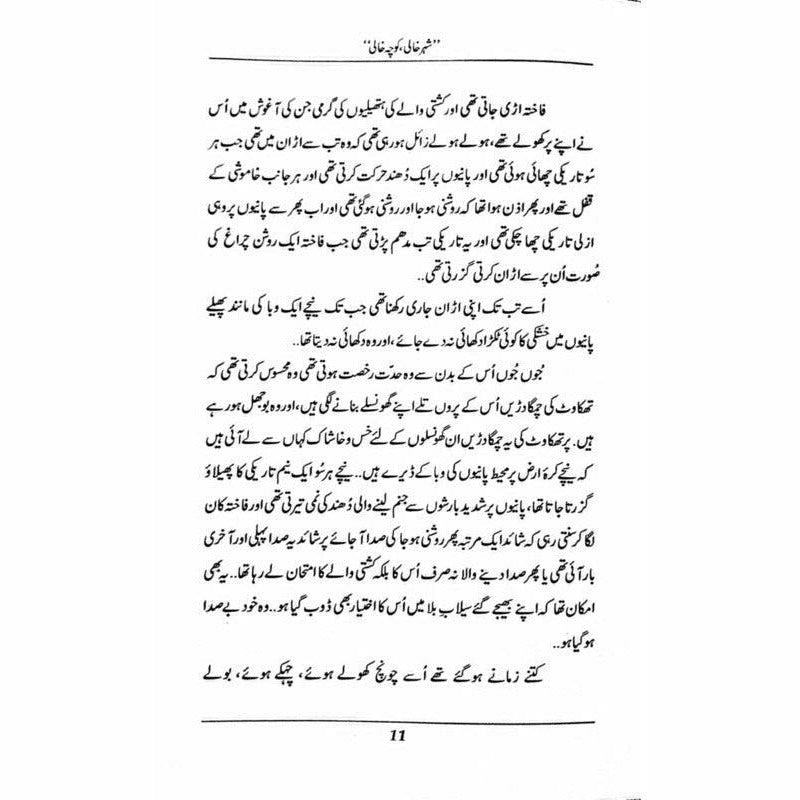 ”شہر خالی، کوچہ خالی“
فاختہ اڑی جاتی تھی اور کشتی والے کی ہتھیلیوں کی گرمی جن کی آغوش میں اُس
نے اپنے پر کھولے تھے، ہولے ہولے زائل ہو رہی تھی کہ وہ تب سے اڑان میں تھی جب ہر
سُو تاریکی چھائی ہوئی تھی اور پانیوں پر ایک دُھند حرکت کرتی تھی اور ہر جانب خاموشی کے
قفل تھے اور پھر اذن ہوا تھا کہ روشنی ہو جا اور روشنی ہو گئی تھی اور اب پھر سے پانیوں پر وہی
ازلی تاریکی چھا چکی تھی اور یہ تاریکی تب مدھم پڑتی تھی جب فاختہ ایک روشن چراغ کی
صُورت اُن پر سے اڑان کرتی گزرتی تھی..
اُسے تب تک اپنی اڑان جاری رکھنا تھی جب تک نیچے ایک وبا کی مانند پھیلے
پانیوں میں خشکی کا کوئی ٹکڑا دکھائی نہ دے جائے، اور وہ دکھائی نہ دیتا تھا..
جُوں جُوں اُس کے بدن سے وہ حدّت رخصت ہوتی تھی وہ محسوس کرتی تھی کہ
تھکاوٹ کی چمگادڑیں اُس کے پروں تلے اپنے گھونسلے بنانے لگی ہیں، اور وہ بوجھل ہو رہے
ہیں. پر تھکاوٹ کی یہ چمگادڑیں ان گھونسلوں کے لئے خس و خاشاک کہاں سے لے آئی ہیں
کہ نیچے کرۂ ارض پر محیط پانیوں کی وبا کے ڈیرے ہیں.. نیچے ہر سُو ایک نیم تاریکی کا پھیلاؤ
گزرتا جاتا تھا، پانیوں پر شدید بارشوں سے جنم لینے والی دُھند کی نمی تیرتی تھی اور فاختہ کان
لگا کر سنتی رہی کہ شائد ایک مرتبہ پھر روشنی ہو جا کی صدا آ جائے پر شائد یہ صدا پہلی اور آخری
بار آئی تھی یا پھر صدا دینے والا نہ صرف اُس کا بلکہ کشتی والے کا امتحان لے رہا تھا.. یہ بھی
امکان تھا کہ اپنے بھیجے گئے سیلابِ بلا میں اُس کا اختیار بھی ڈوب گیا ہو.. وہ خود بے صدا
ہو گیا ہو..
کتنے زمانے ہو گئے تھے اُسے چونچ کھولے ہوئے، چہکے ہوئے، بولے
11